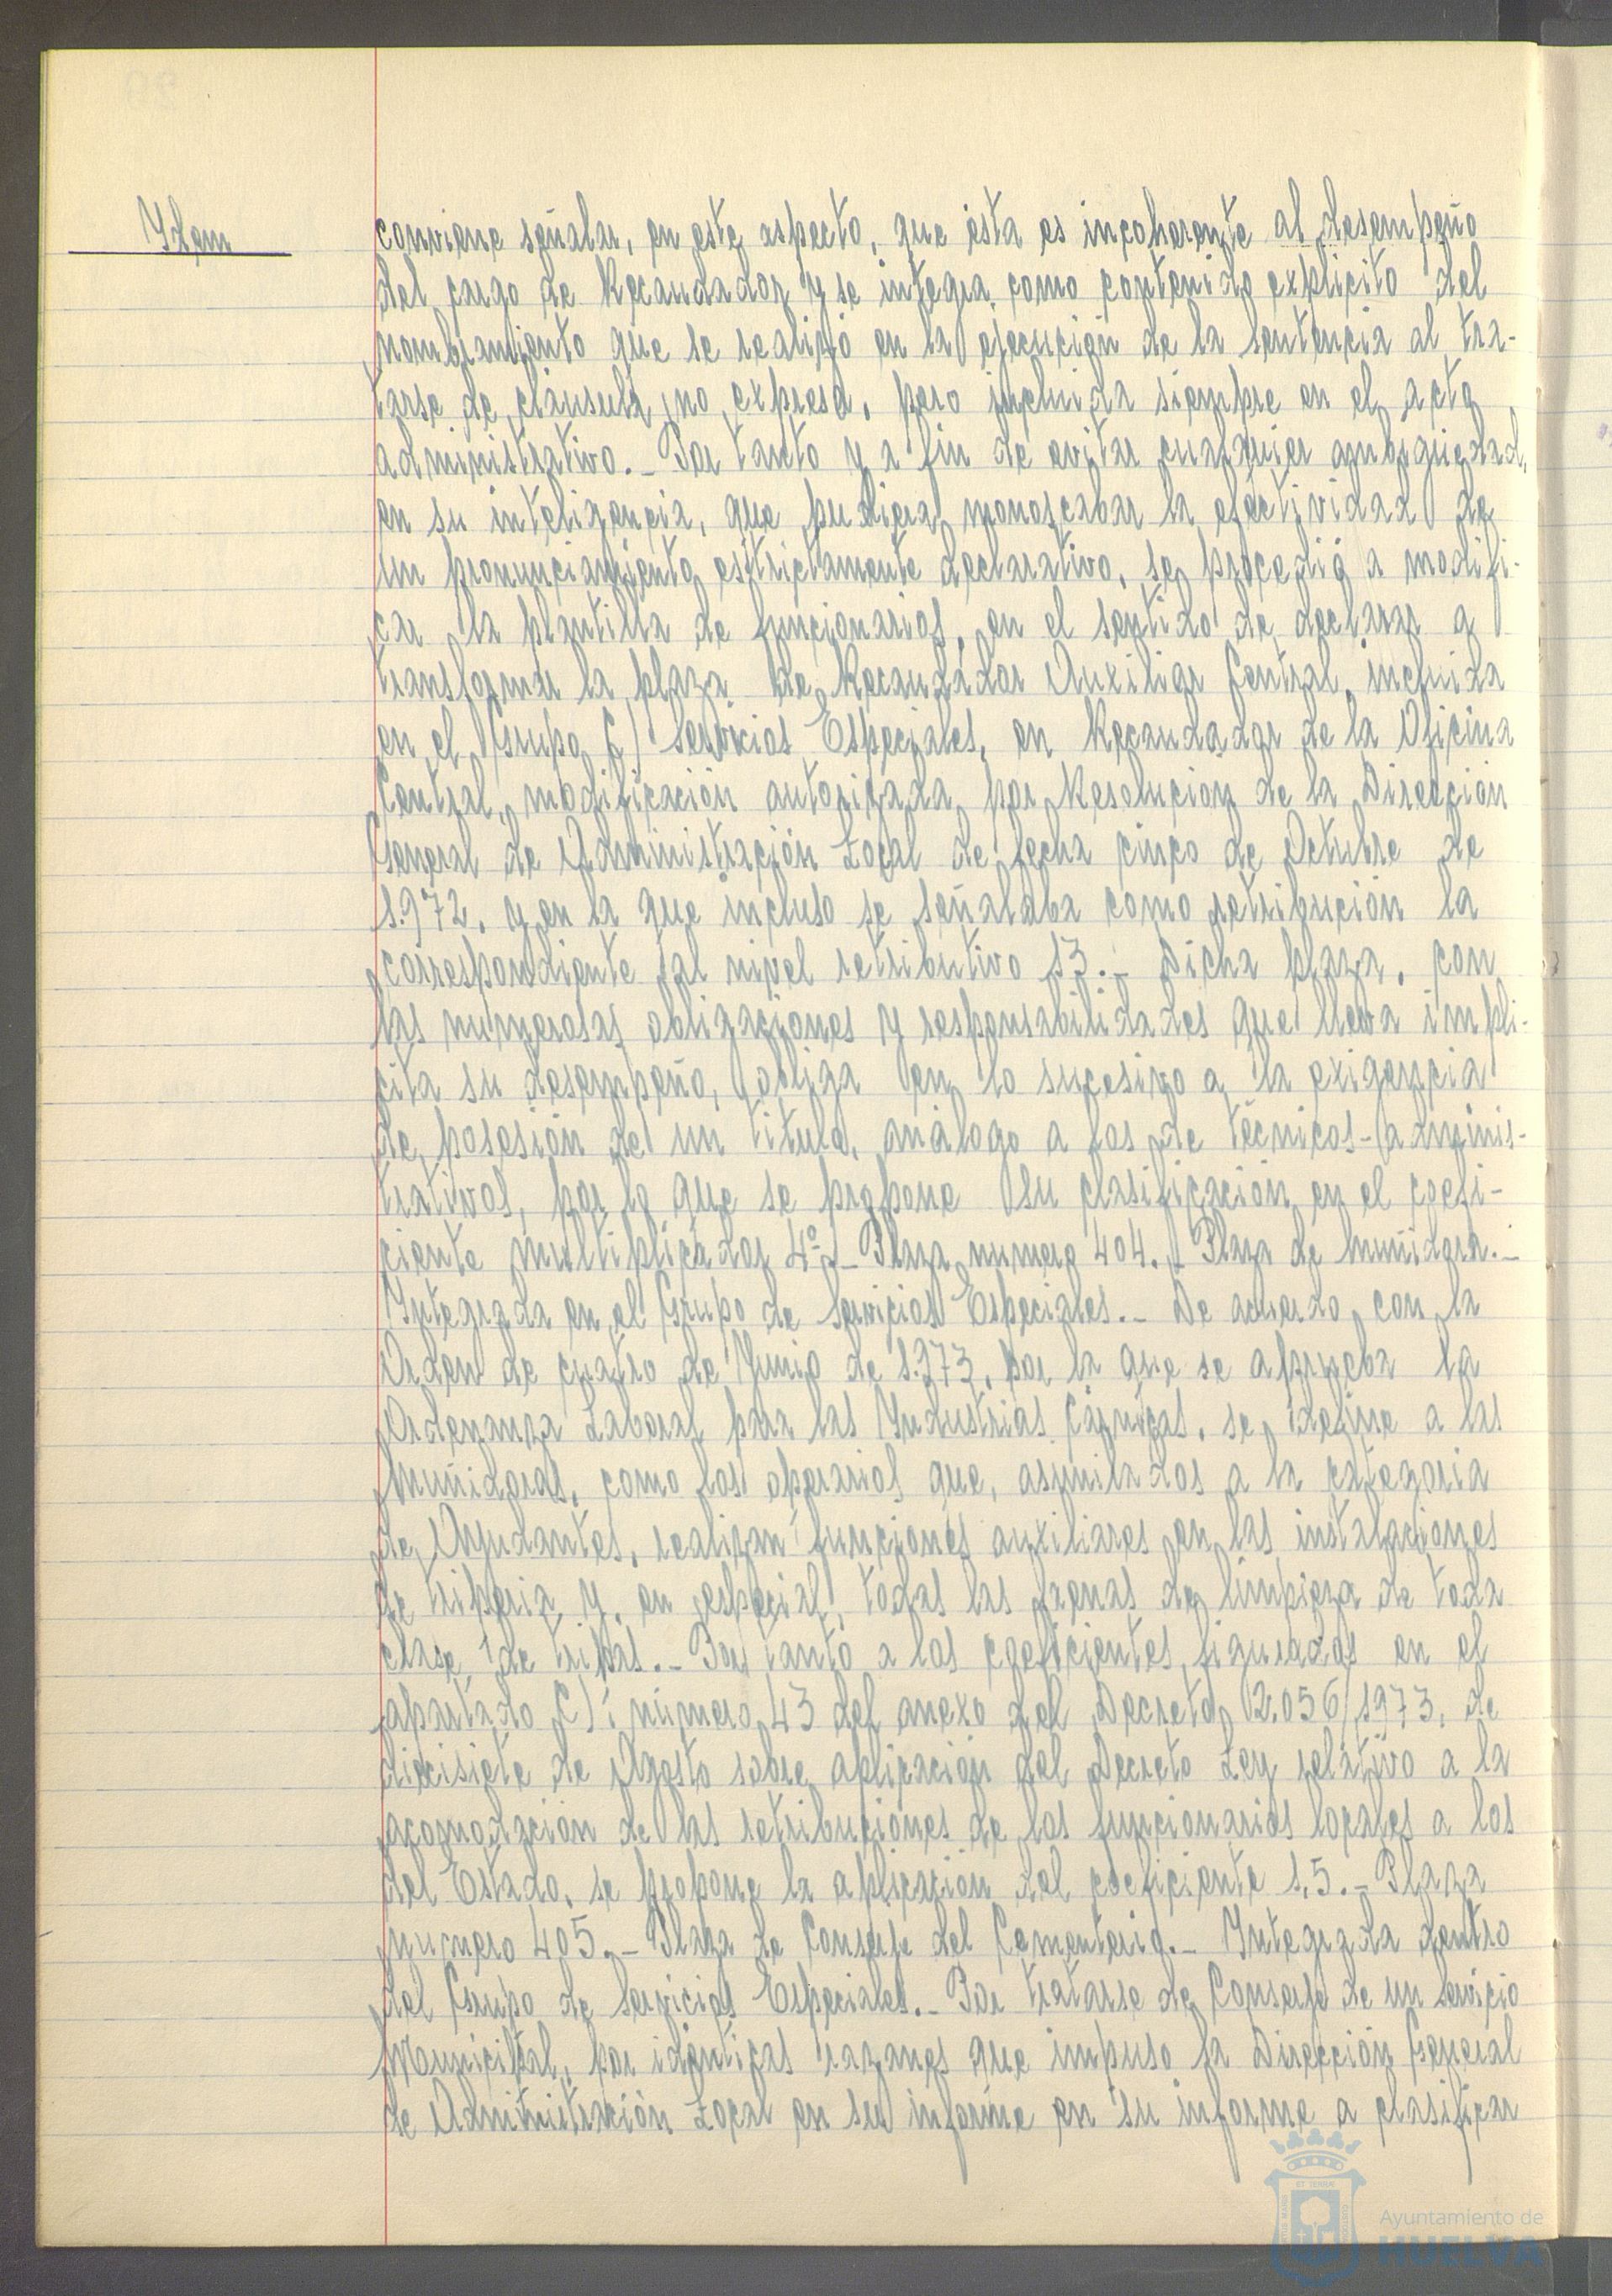 Idem
conviene señalar, en este aspecto, que ésta es incoherente al desempeño
del cargo de Recaudador y se integra como contenido explicito del
nombramiento que se realizó en la ejecución de la sentencia al tra-
tarse de cláusula no expresa, pero incluida siempre en el acto
administrativo.- Por tanto y a fin de evitar cualquier ambigüedad,
en su inteligencia, que pudiera menoscabar la efectividad de
un pronunciamiento estrictamente declarativo, se procedió a modifi-
car la plantilla de funcionarios, en el sentido de declarar a
transformar la plaza de Recaudador Auxiliar Central, incluida
en el Grupo C) Servicios Especiales, en Recaudador de la Oficina
Central, modificación autorizada por Resolución de la Dirección
General de Administración Local de fecha cinco de Octubre de
1.972, y en la que incluso se señalaba como retribución la
correspondiente al nivel retributivo 13.- Dicha plaza, con
las numerosas obligaciones y responsabilidades que lleva impli-
cita su desempeño, obliga en lo sucesivo a la exigencia
de posesión de un titulo, análogo a los de técnicos-adminis-
trativos, por lo que se propone su clasificación en el coefi-
ciente multiplicador 4º.- Plaza numero 404.- Plaza de Muñidora.-
Integrada en el Grupo de Servicios Especiales.- De acuerdo con la
Orden de cuatro de Junio de 1.973, por la que se aprueba la
Ordenanza Laboral para las Industrias Cárnicas, se define a las
Muñidoras, como los operarios que, asimilados a la categoria
de Ayudantes, realizan funciones auxiliares en las instalaciones
de triperia y, en especial, todas las faenas de limpieza de toda
clase de tripas.- Por tanto a los coeficientes figurados en el
apartado C), número 43 del anexo del Decreto 2.056/1973, de
diecisiete de Agosto sobre aplicación del Decreto Ley relativo a la
acomodación de las retribuciones de los funcionarios locales a los
del Estado, se propone la aplicación del coeficiente 1,5.- Plaza
numero 405.- Plaza de Conserje del Cementerio.- Integrada dentro
del Grupo de Servicios Especiales.- Por tratarse de Conserje de un Servicio
Municipal, por identicas razones que impuso la Dirección General
de Administración Local en su informe en su informe a clasificar
Ayuntamiento de
HUELVA